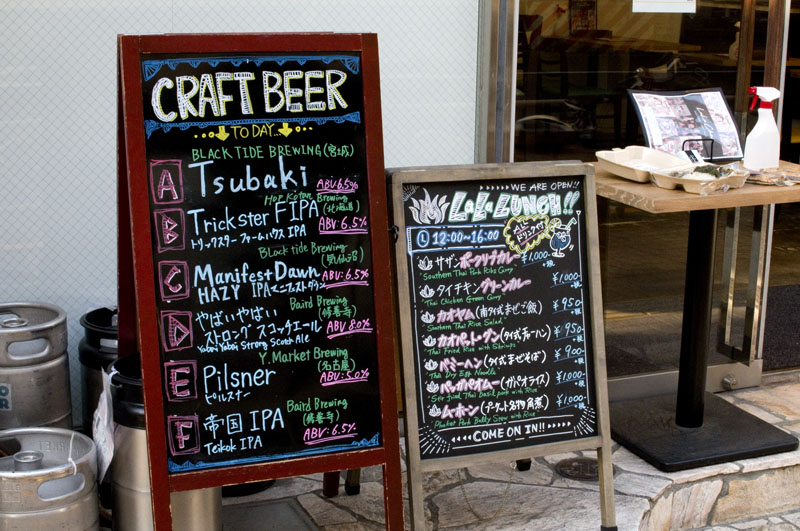 CRAFT BEER
TO DAY...
BLACK TIDE BREWING (宮城)
A Tsubaki ABV 6.5%
Hop Kotan Brewing (北海道)
B Trickster FIPA ABV: 6.5%
トリックスター ファームハウス IPA
Black tide Brewing (気仙沼)
C Manifest Dawn ABV: 6.5%
HAZY IPA マニフェストドーン
Baird Brewing (修善寺)
D やばいやばい
ストロング スコッチエール
Yabai Yabai Strong Scotch Ale ABV: 8.0%
Y. Market Brewing (名古屋)
E Pilsner ABV: 5.0%
ピルスナー
Baird Brewing (修善寺)
F 帝国 IPA ABV: 6.5%
Teikok IPA
WE ARE OPEN!!
LaLa LUNCH!!
12:00~16:00
サザンポークリブカレー ¥1,000
Southern Thai Pork Ribs Curry
タイチキングリーンカレー ¥1,000
Thai Chicken Green Curry
カオヤム (南タイ式まぜご飯) ¥950
Southern Thai Rice Salad
カオパットクン (タイ式チャーハン) ¥950
Thai Fried Rice with Shrimps
バミーヘン (タイ式まぜそば) ¥900
Thai Dry Egg Noodle
パッガパオムー (ガパオライス) ¥1,000
Stir fried Thai Basil pork with Rice
ムーホン (プーケット名物角煮) ¥1,000
Phuket Pork Belly Stew with Rice
COME ON IN!!